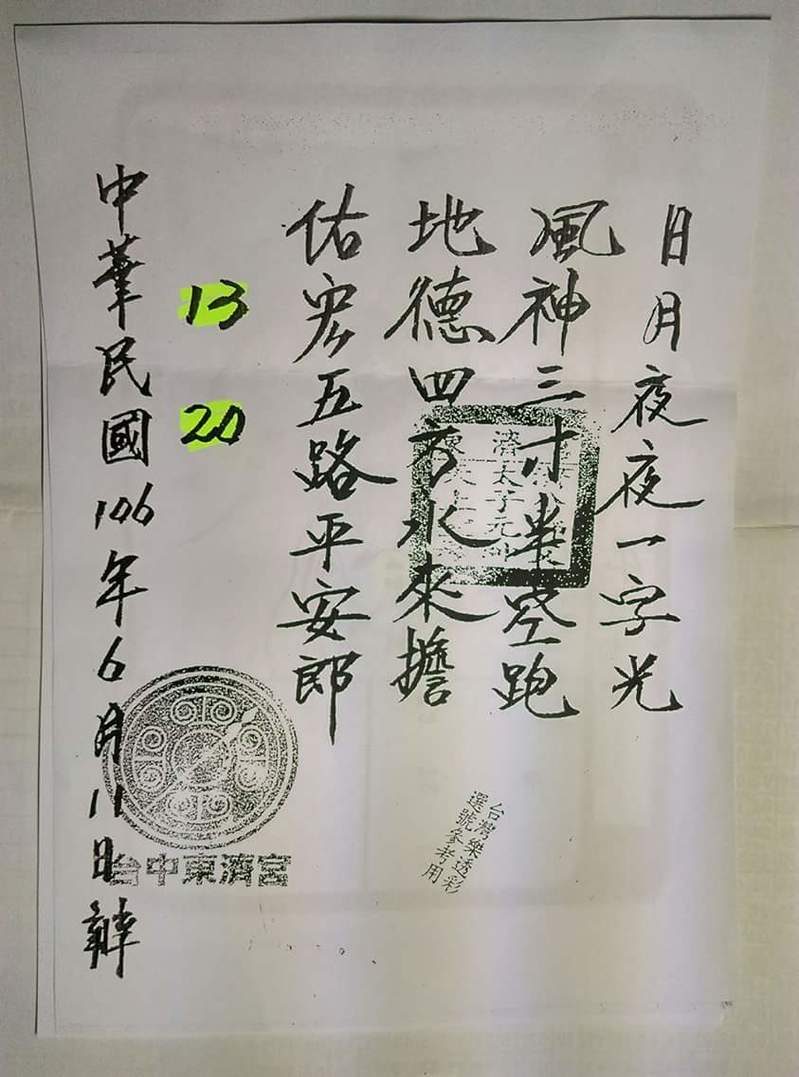 日月夜夜一字光
風神三寸半空跑
地德四方水來擔
佑宏五路平安郎
13
20
中華民國106年6月11日
台中東濟宮
台灣樂透彩
選號參考用
濟太子元帥